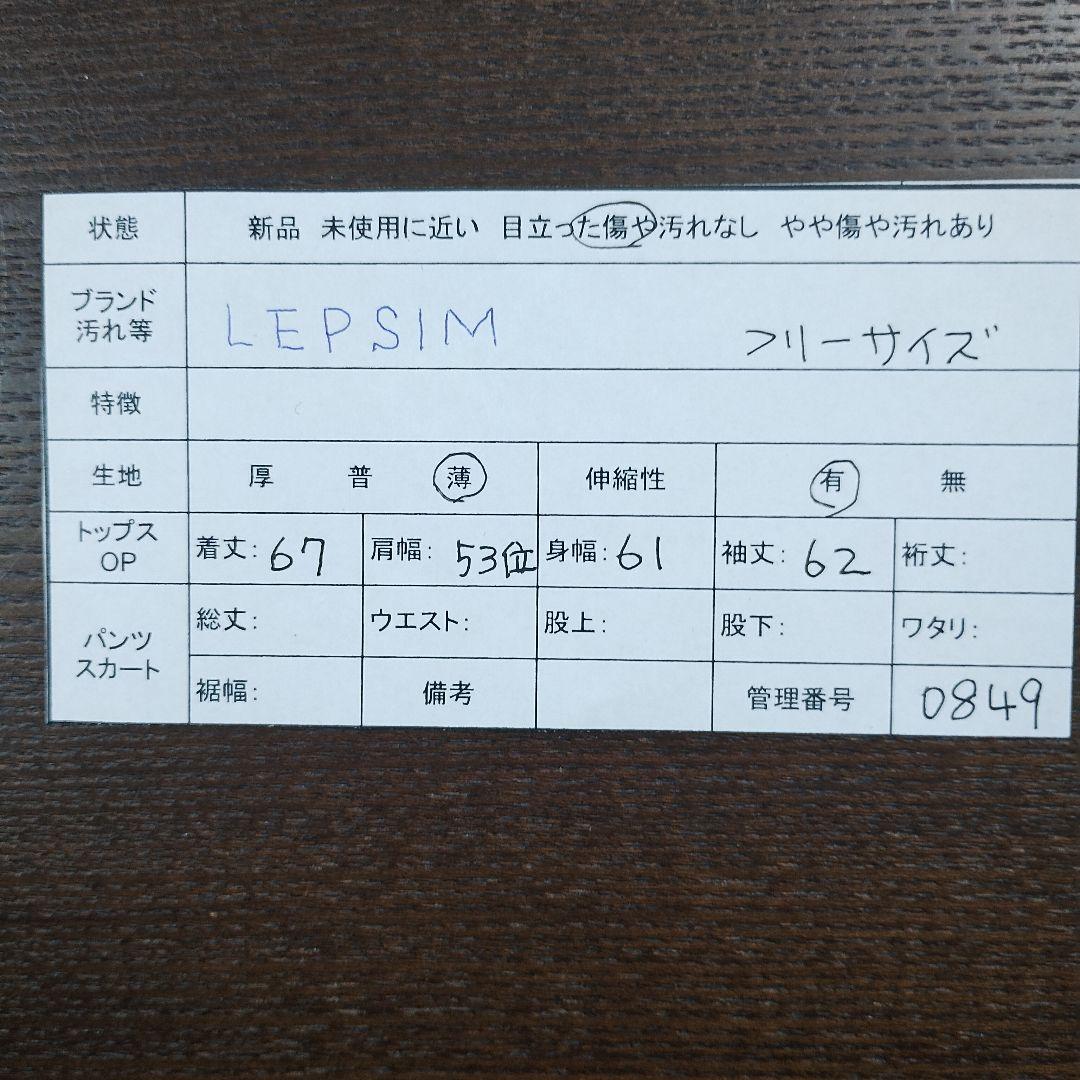 状態 新品 未使用に近い 目立った傷や汚れなし やや傷や汚れあり
ブランド
汚れ等 LEPSIM フリーサイズ
特徴
生地 厚 普 薄 伸縮性 有 無
トップス
OP 着丈: 67 肩幅: 53位 身幅: 61 袖丈: 62 裄丈:
パンツ
スカート 総丈: ウエスト: 股上: 股下: ワタリ:
裾幅: 備考 管理番号 0849